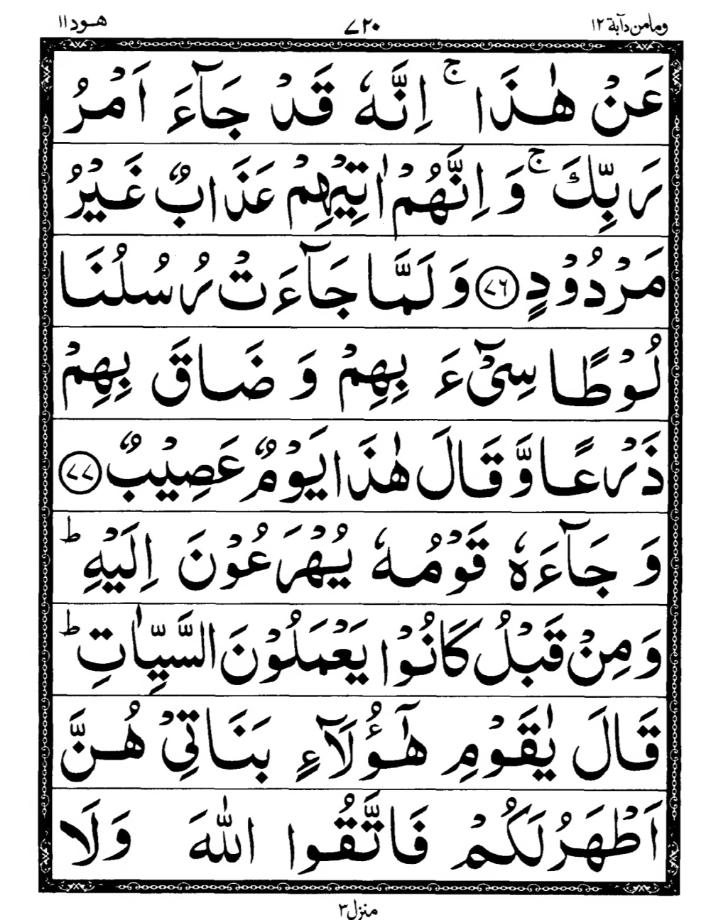 ومامن دآبة ١٢ ٧٢٠ هود ١١
عَنْ هٰذَا ۚ اِنَّهٗ قَدْ جَآءَ اَمْرُ
رَبِّكَ ۚ وَ اِنَّهُمْ اٰتِيْهِمْ عَذَابٌ غَيْرُ
مَرْدُوْدٍ ﴿٧٦﴾ وَ لَمَّا جَآءَتْ رُسُلُنَا
لُوْطًا سِيْٓءَ بِهِمْ وَ ضَاقَ بِهِمْ
ذَرْعًا وَّ قَالَ هٰذَا يَوْمٌ عَصِيْبٌ ﴿٧٧﴾
وَ جَآءَهٗ قَوْمُهٗ يُهْرَعُوْنَ اِلَيْهِ ؕ
وَ مِنْ قَبْلُ كَانُوْا يَعْمَلُوْنَ السَّيِّاٰتِ ؕ
قَالَ يٰقَوْمِ هٰٓؤُلَآءِ بَنَاتِيْ هُنَّ
اَطْهَرُ لَكُمْ فَاتَّقُوا اللّٰهَ وَلَا
منزل ٣